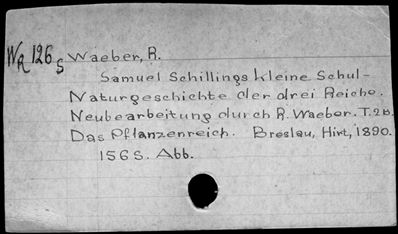 WR 126 S Waeber, R.
Samuel Schillings kleine Schul-
Naturgeschichte der drei Reiche.
Neubearbeitung durch R. Waeber. T. 2 B.
Das Pflanzenreich. Breslau, Hirt, 1890.
156 S. Abb.